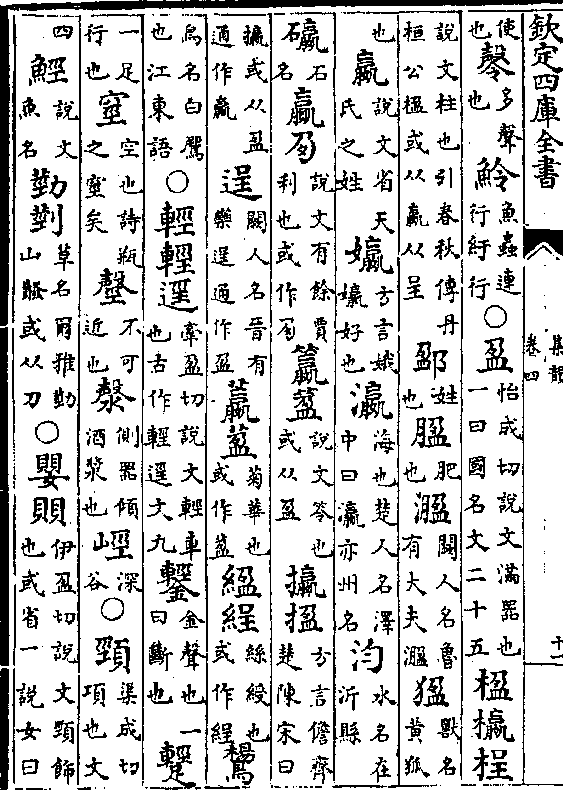 欽定四庫全書
集韻
卷四
十一
使也 多聲也 魿魚蟲連行紆行○盈怡成切說文滿器也一曰國名文二十五 楹㰕桯
說文柱也引春秋傳丹桓公楹或从嬴从呈 姓也 肥也 溋闕人名魯有大夫溋 獸名黄狐
也 嬴說文省天氏之姓 㜲方言娥㜲好也 瀛海也楚人名澤中曰瀛亦州名 汮水名在沂縣
石名 贏說文有餘賈利也或作 籯說文笭也或从盈 攍㨕方言儋齊楚陳宋曰
攍或从盈通作贏 逞闕人名晉有欒逞通作盈 菊華也或作 絲綬也或作綎
鳥名白鷢也江東語○輕輕牽盈切說文輕車也古作輕文九 金聲也一曰斷也
一足行也 空也詩瓶之窒矣 不可近也 漀側器傾酒漿也 深谷○頸渠成切項也文
四 鯹說文魚名 葝草名爾雅葝山䪥或从刀○嬰賏伊盈切說文頸飾也或省一說女曰